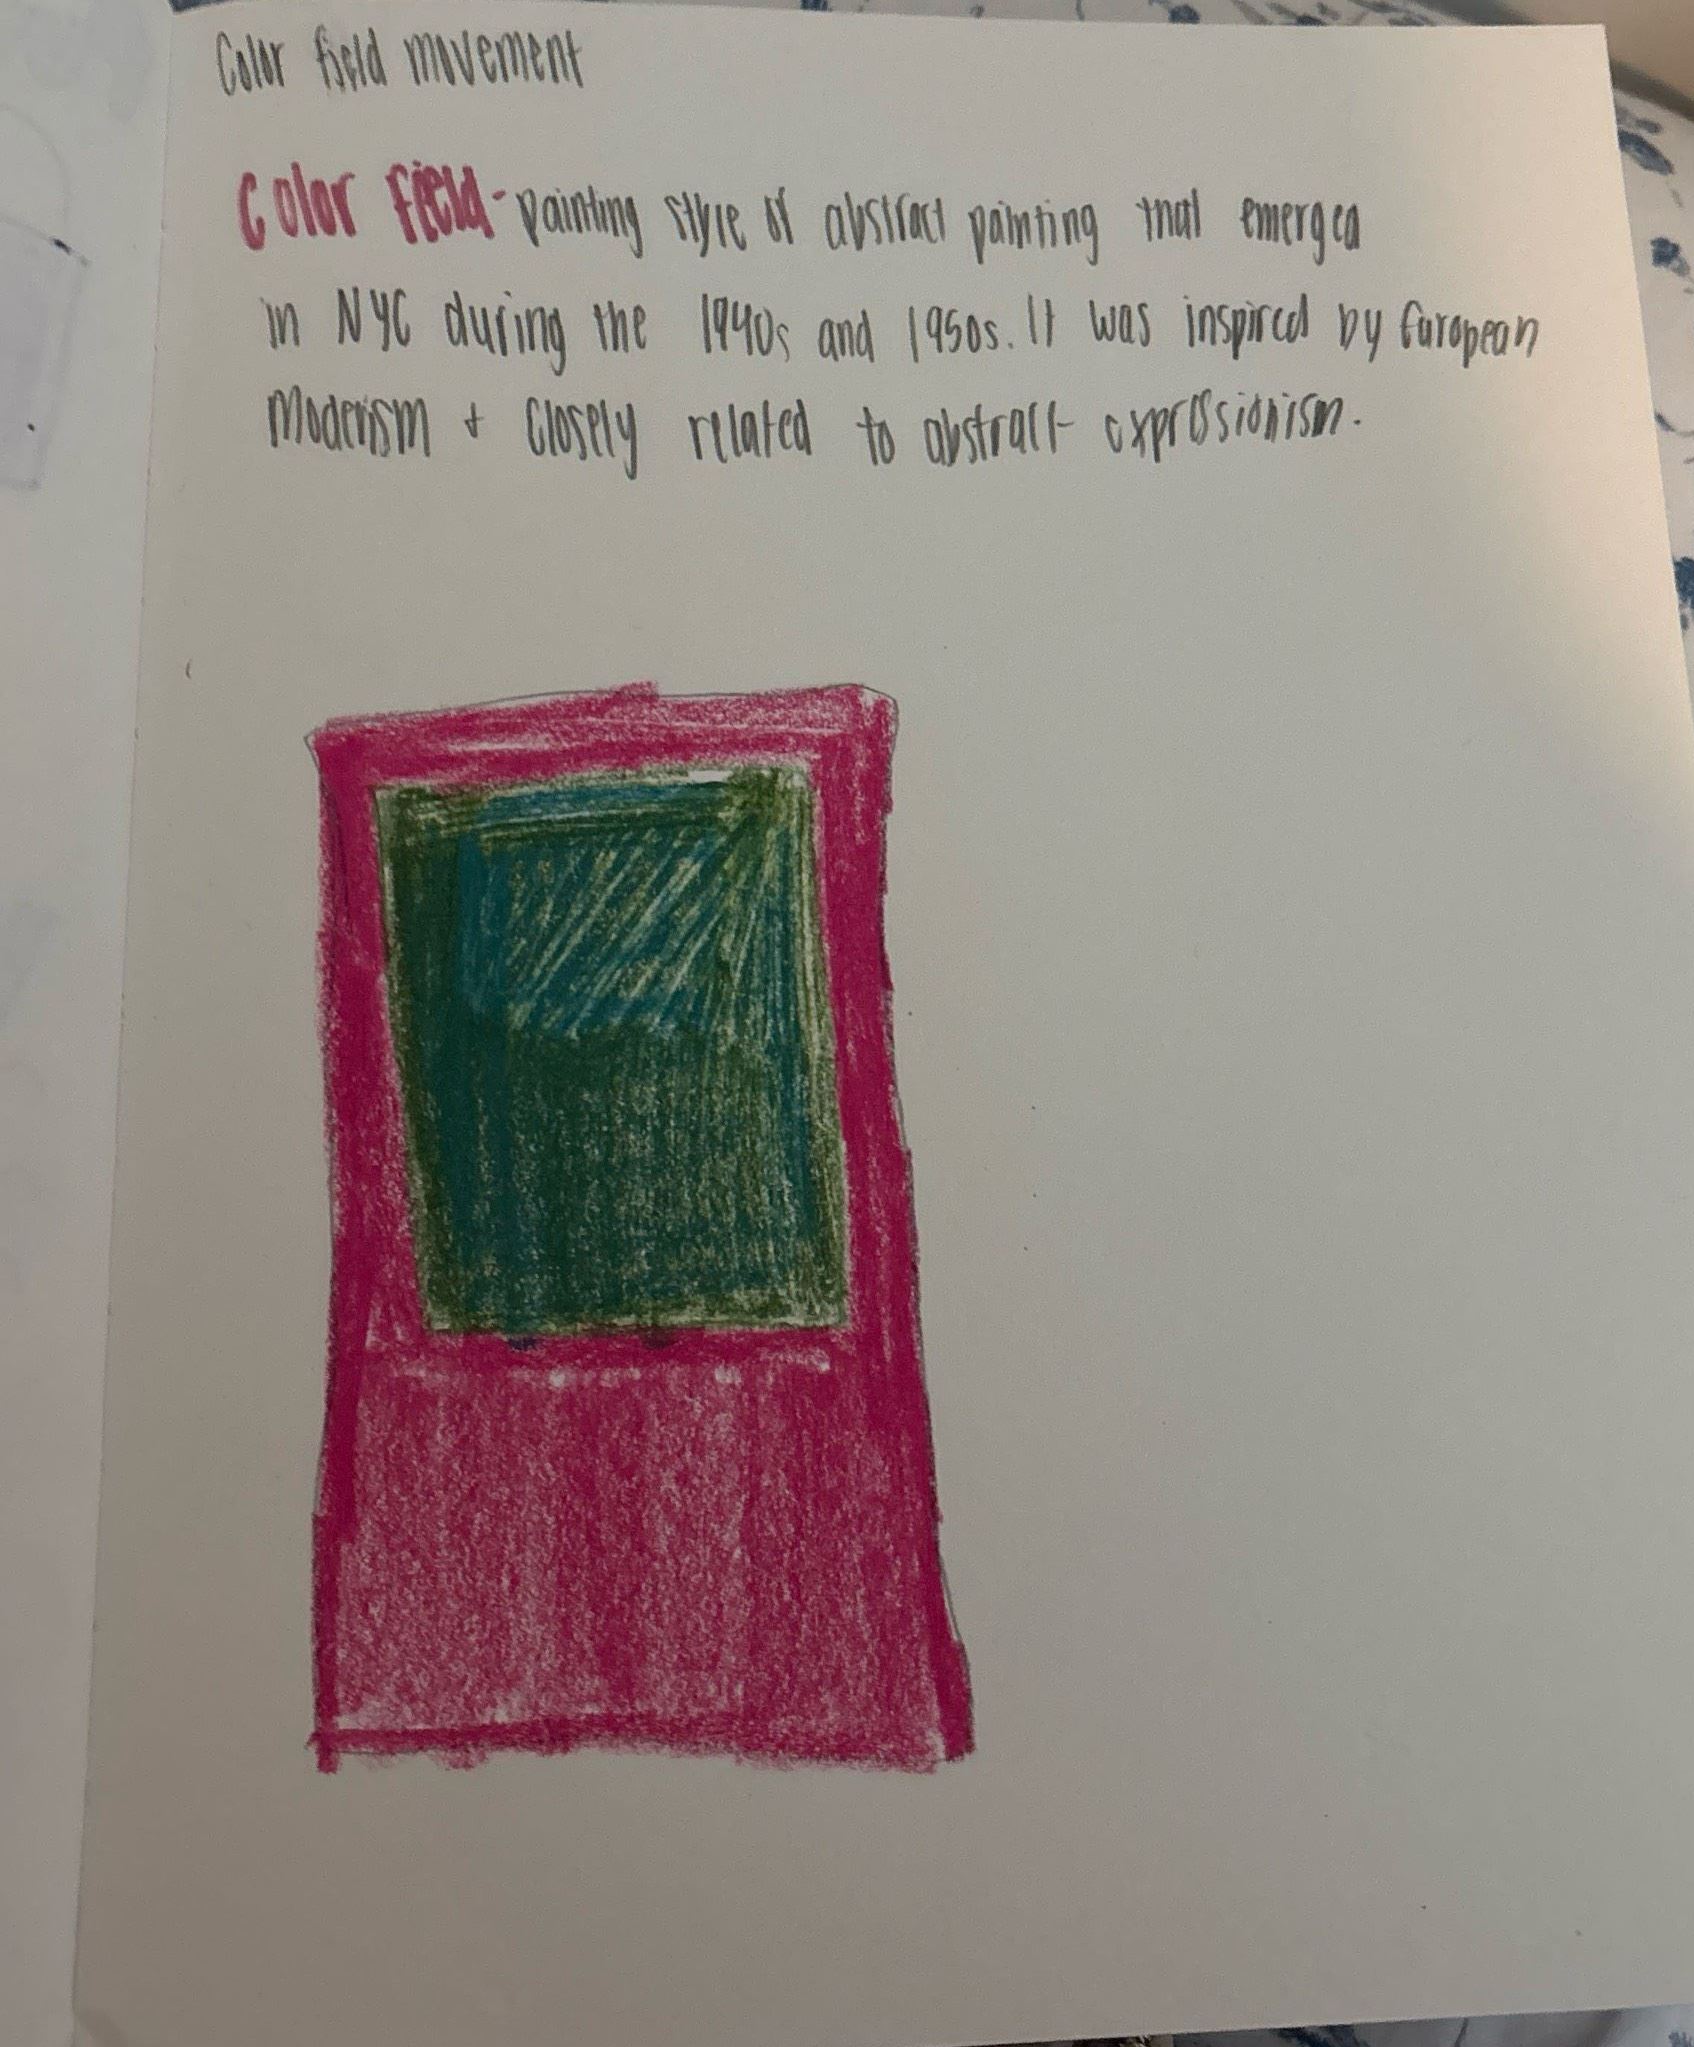 Color field movement
Color field - painting style of abstract painting that emerged
in NYC during the 1940s and 1950s. It was inspired by European
Moderism + closely related to abstract expressionism.